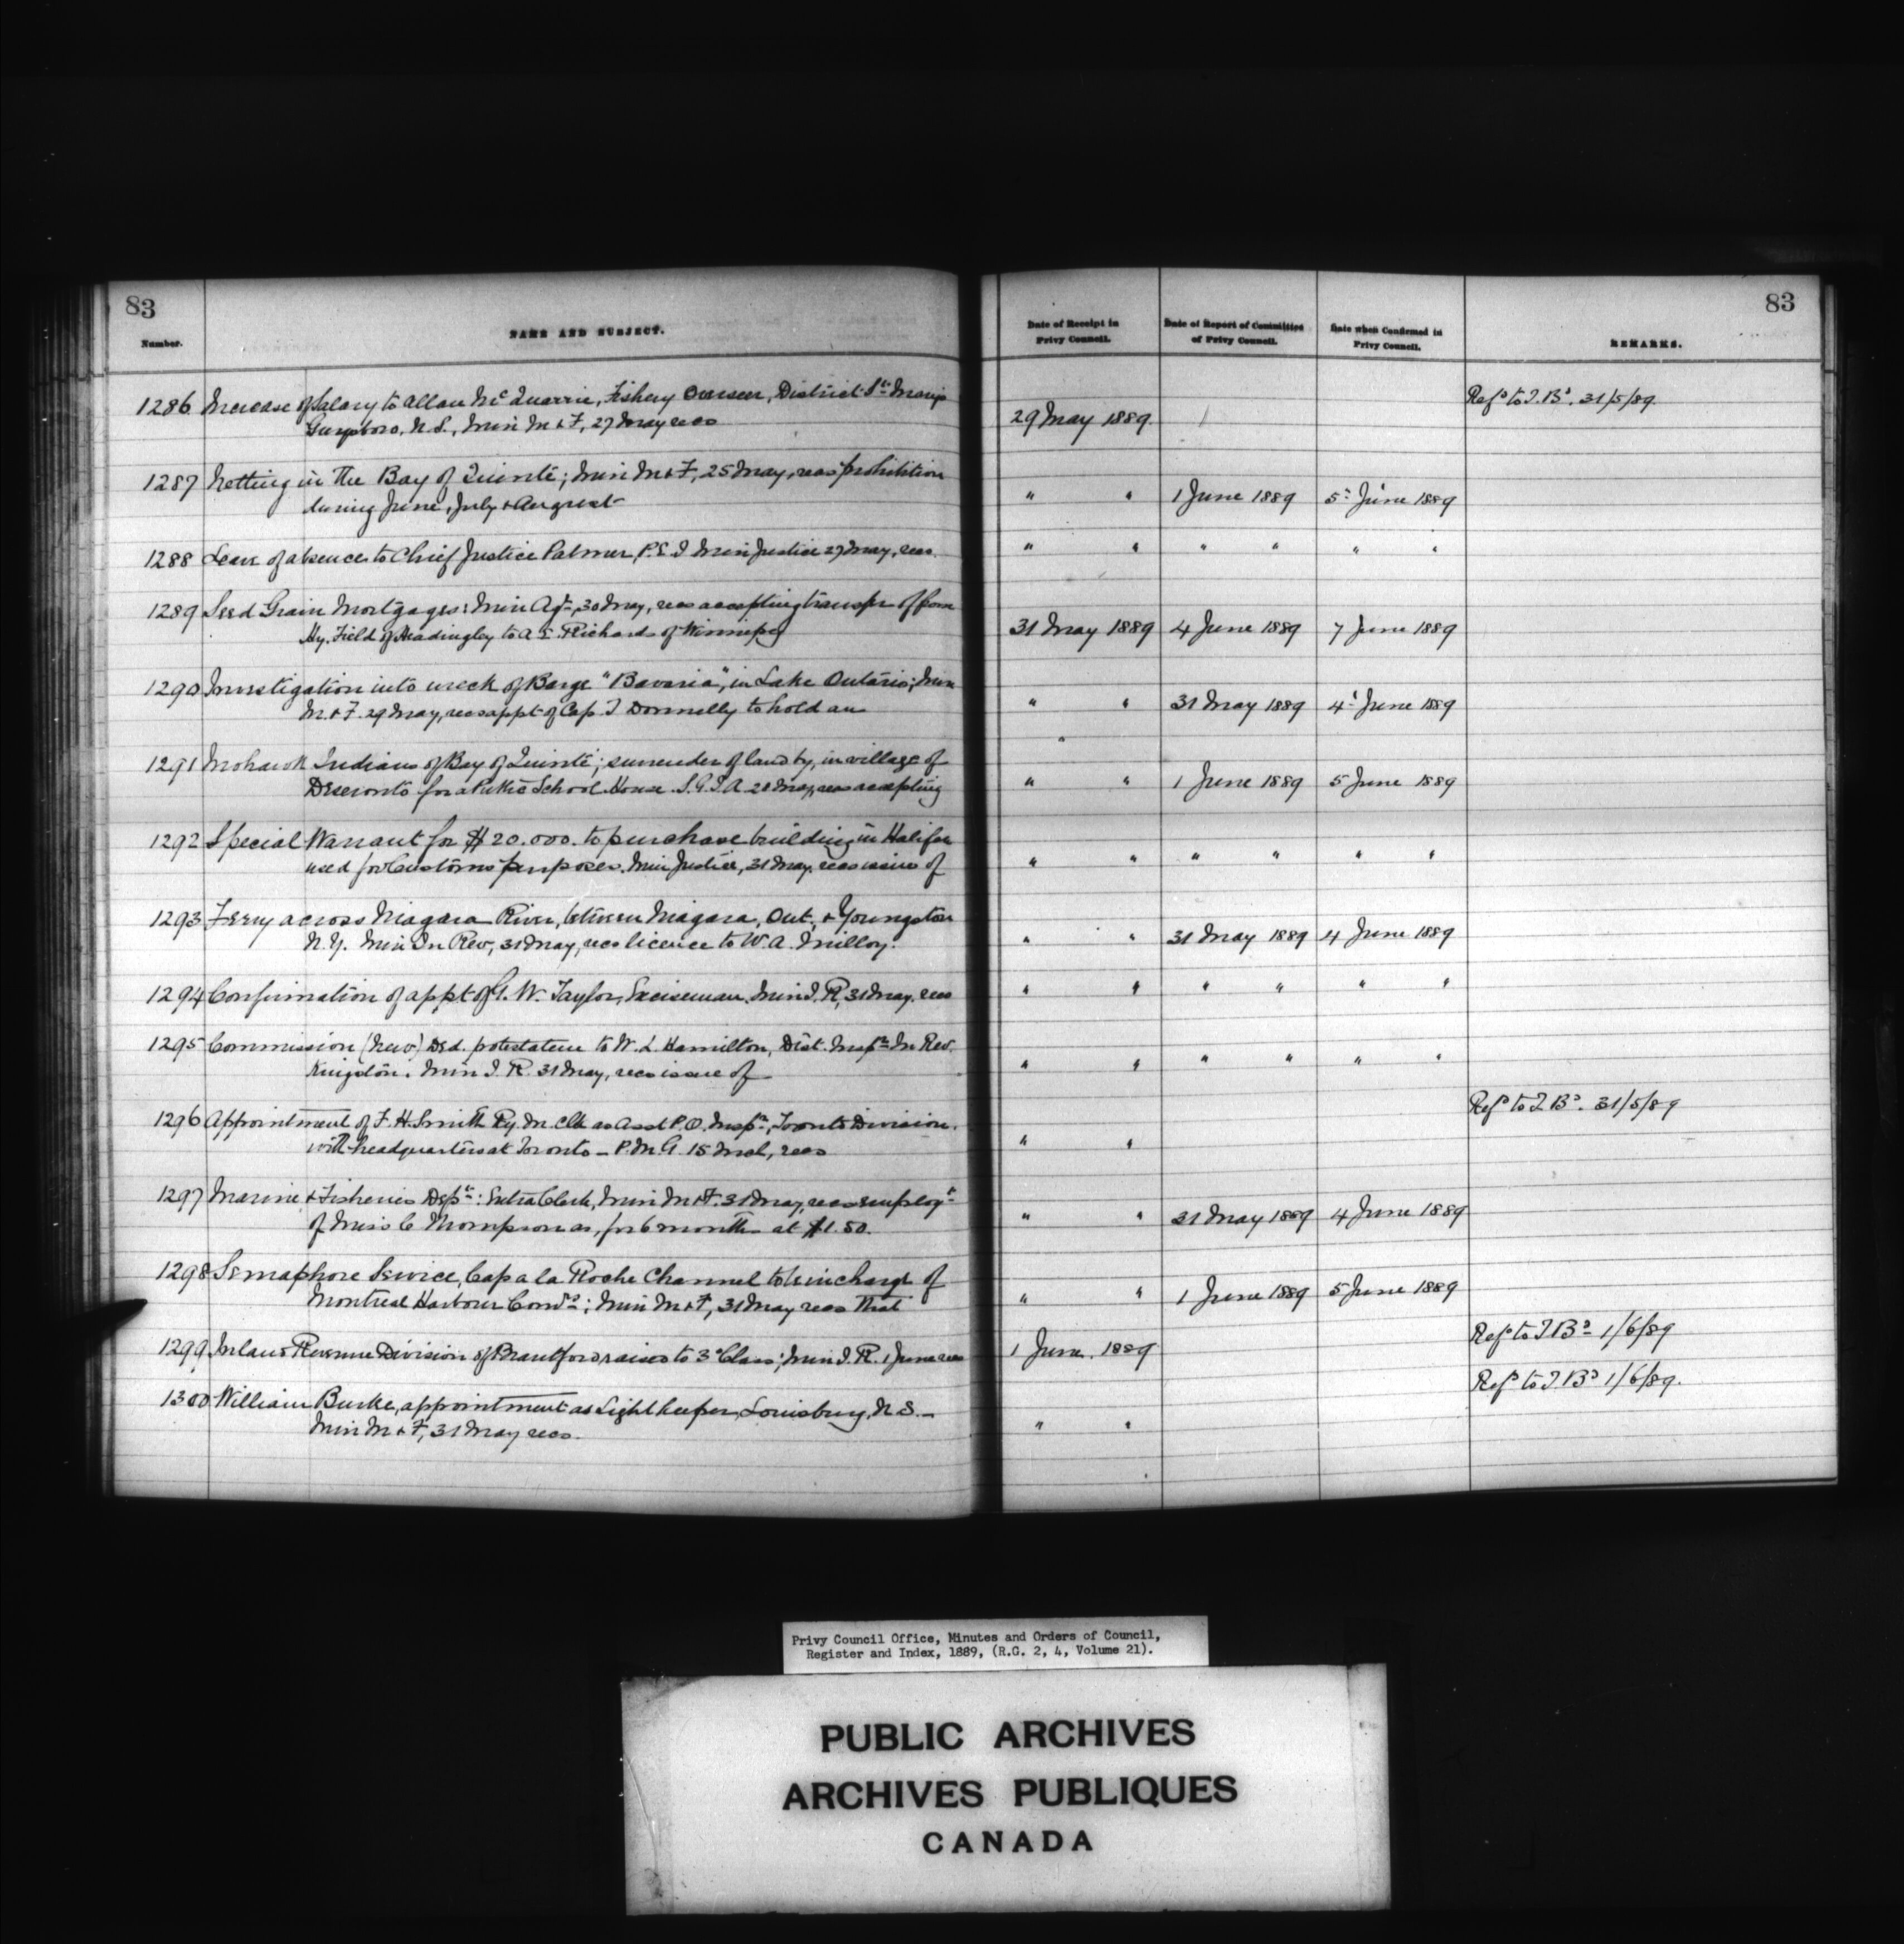 83
83
Number.
NAME AND SUBJECT.
Date of Receipt in
Privy Council.
Date of Report of Committee
of Privy Council.
Date when Confirmed in
Privy Council.
REMARKS.
1286 Increase of Salary to Allan McQuarrie, Fishery Overseer, District St Mary's
Guysboro, N.S., Min M & F, 27 May recs
29 May 1889.
Refd to T. Bd. 31/5/89.
1287 Netting in the Bay of Quinté; Min M & F, 25 May, recs prohibition
during June, July & August
" " 1 June 1889 5 June 1889
1288 Leave of absence to Chief Justice Palmer, P.E.I Min Justice 27 May, recs.
" " " " " "
1289 Seed Grain Mortgages: Min Agr, 30 May, recs accepting transfer of from
Hy. Field of Headingley to A. E. Richards of Winnipeg
31 May 1889 4 June 1889 7 June 1889
1290 Investigation into wreck of Barge "Bavaria", in Lake Ontario; Min
M & F. 29 May, recs appt of Cap. T Donnelly to hold an
" " 31 May 1889 4 June 1889
1291 Mohawk Indians of Bay of Quinté; surrender of land by, in village of
Deseronto for a Public School House S.G.I.A 28 May, recs accepting
" " 1 June 1889 5 June 1889
1292 Special Warrant for $20.000. to purchase building in Halifax
used for Customs purposes. Min Justice, 31 May. recs issue of
" " " " " "
1293 Ferry across Niagara River, between Niagara, Ont, & Youngston
N.Y. Min In Rev, 31 May, recs licence to W. A. Milloy.
" " 31 May 1889 4 June 1889
1294 Confirmation of appt of G. W. Taylor, Exciseman. Min I. R, 31 May. recs
" " " " " "
1295 Commission (new) Ded. potestatem to W. L. Hamilton, Dist. Inspr In Rev.
Kingston. Min I. R. 31 May, recs issue of
" " " " " "
1296 Appointment of F. H. Smith Ry. M. Clk as Asst P.O. Inspr, Toronto Division.
with headquarters at Toronto – P.M.G. 15 Mch, recs
" "
Refd to T Bd. 31/5/89
1297 Marine & Fisheries Dept: Extra Clerk, Min M & F. 31 May, recs employt
of Miss C Thompson as, for 6 months at $1.50.
" " 31 May 1889 4 June 1889
1298 Semaphore Service, Cap a la Roche Channel to be in charge of
Montreal Harbour Comrs; Min M & F, 31 May recs that
" " 1 June 1889 5 June 1889
1299 Inland Revenue Division of Brantford raised to 3d Class; Min I. R. 1 June recs
1 June. 1889
Refd to T Bd 1/6/89
1300 William Burke, appointment as Lightkeeper, Louisburg, N.S. –
Min M & F, 31 May recs.
" "
Refd to T. Bd 1/6/89.
Privy Council Office, Minutes and Orders of Council,
Register and Index, 1889, (R.G. 2, 4, Volume 21).
PUBLIC ARCHIVES
ARCHIVES PUBLIQUES
CANADA